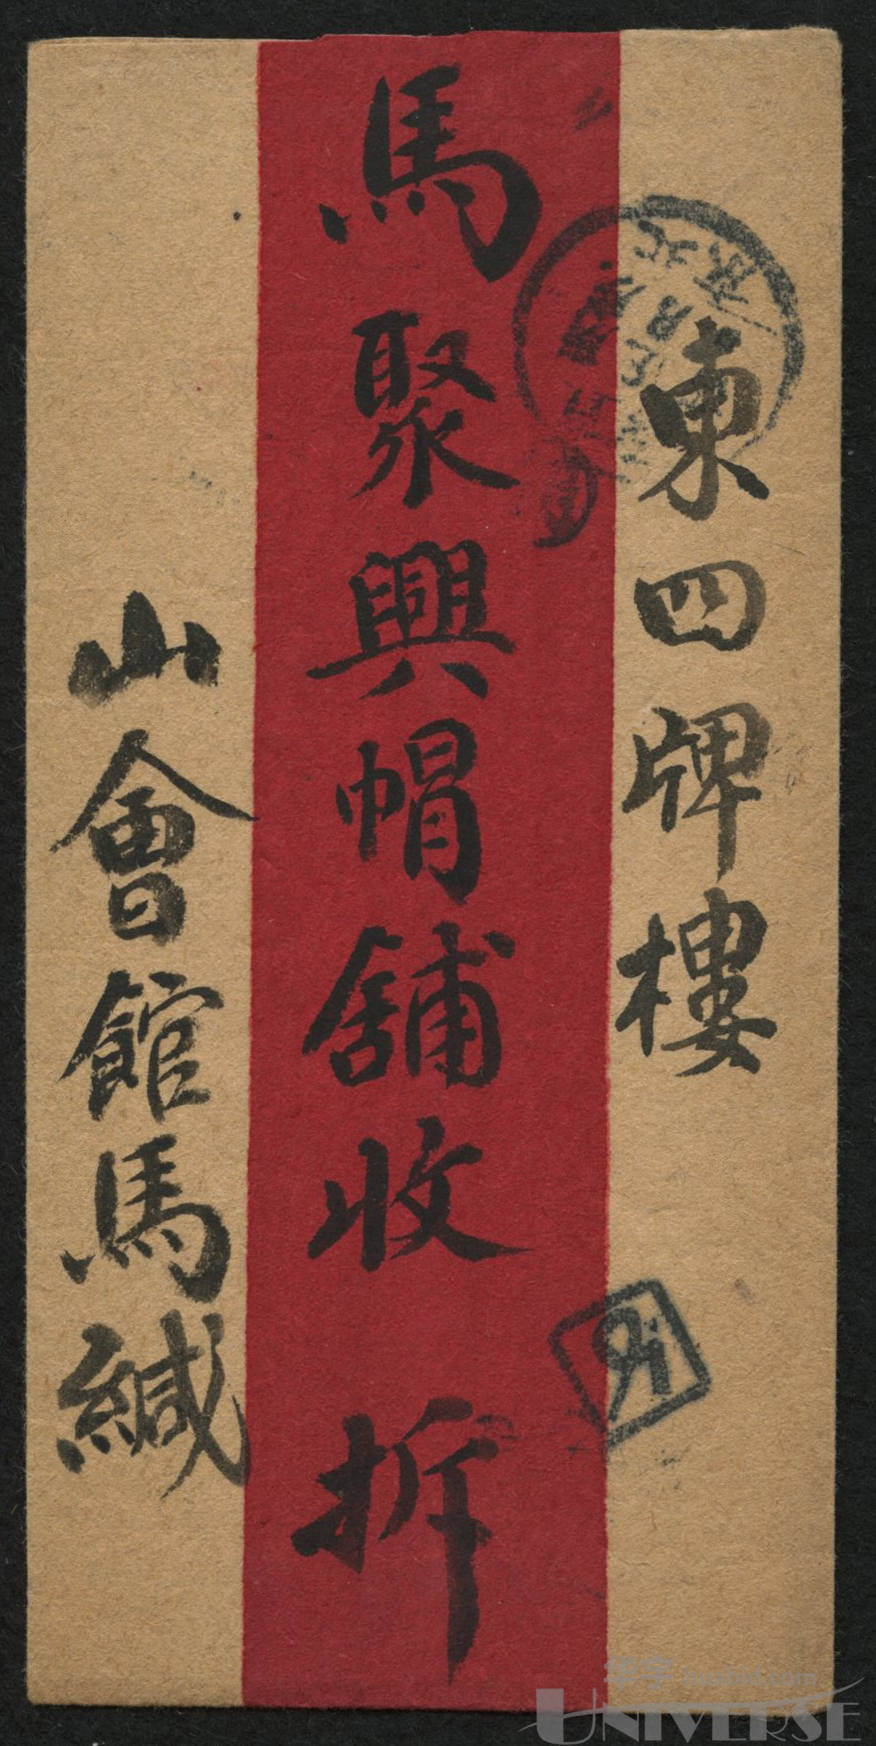 東四牌樓
馬聚興帽舖收 折
山會館馬緘
北京
華宇
UNIVERSE